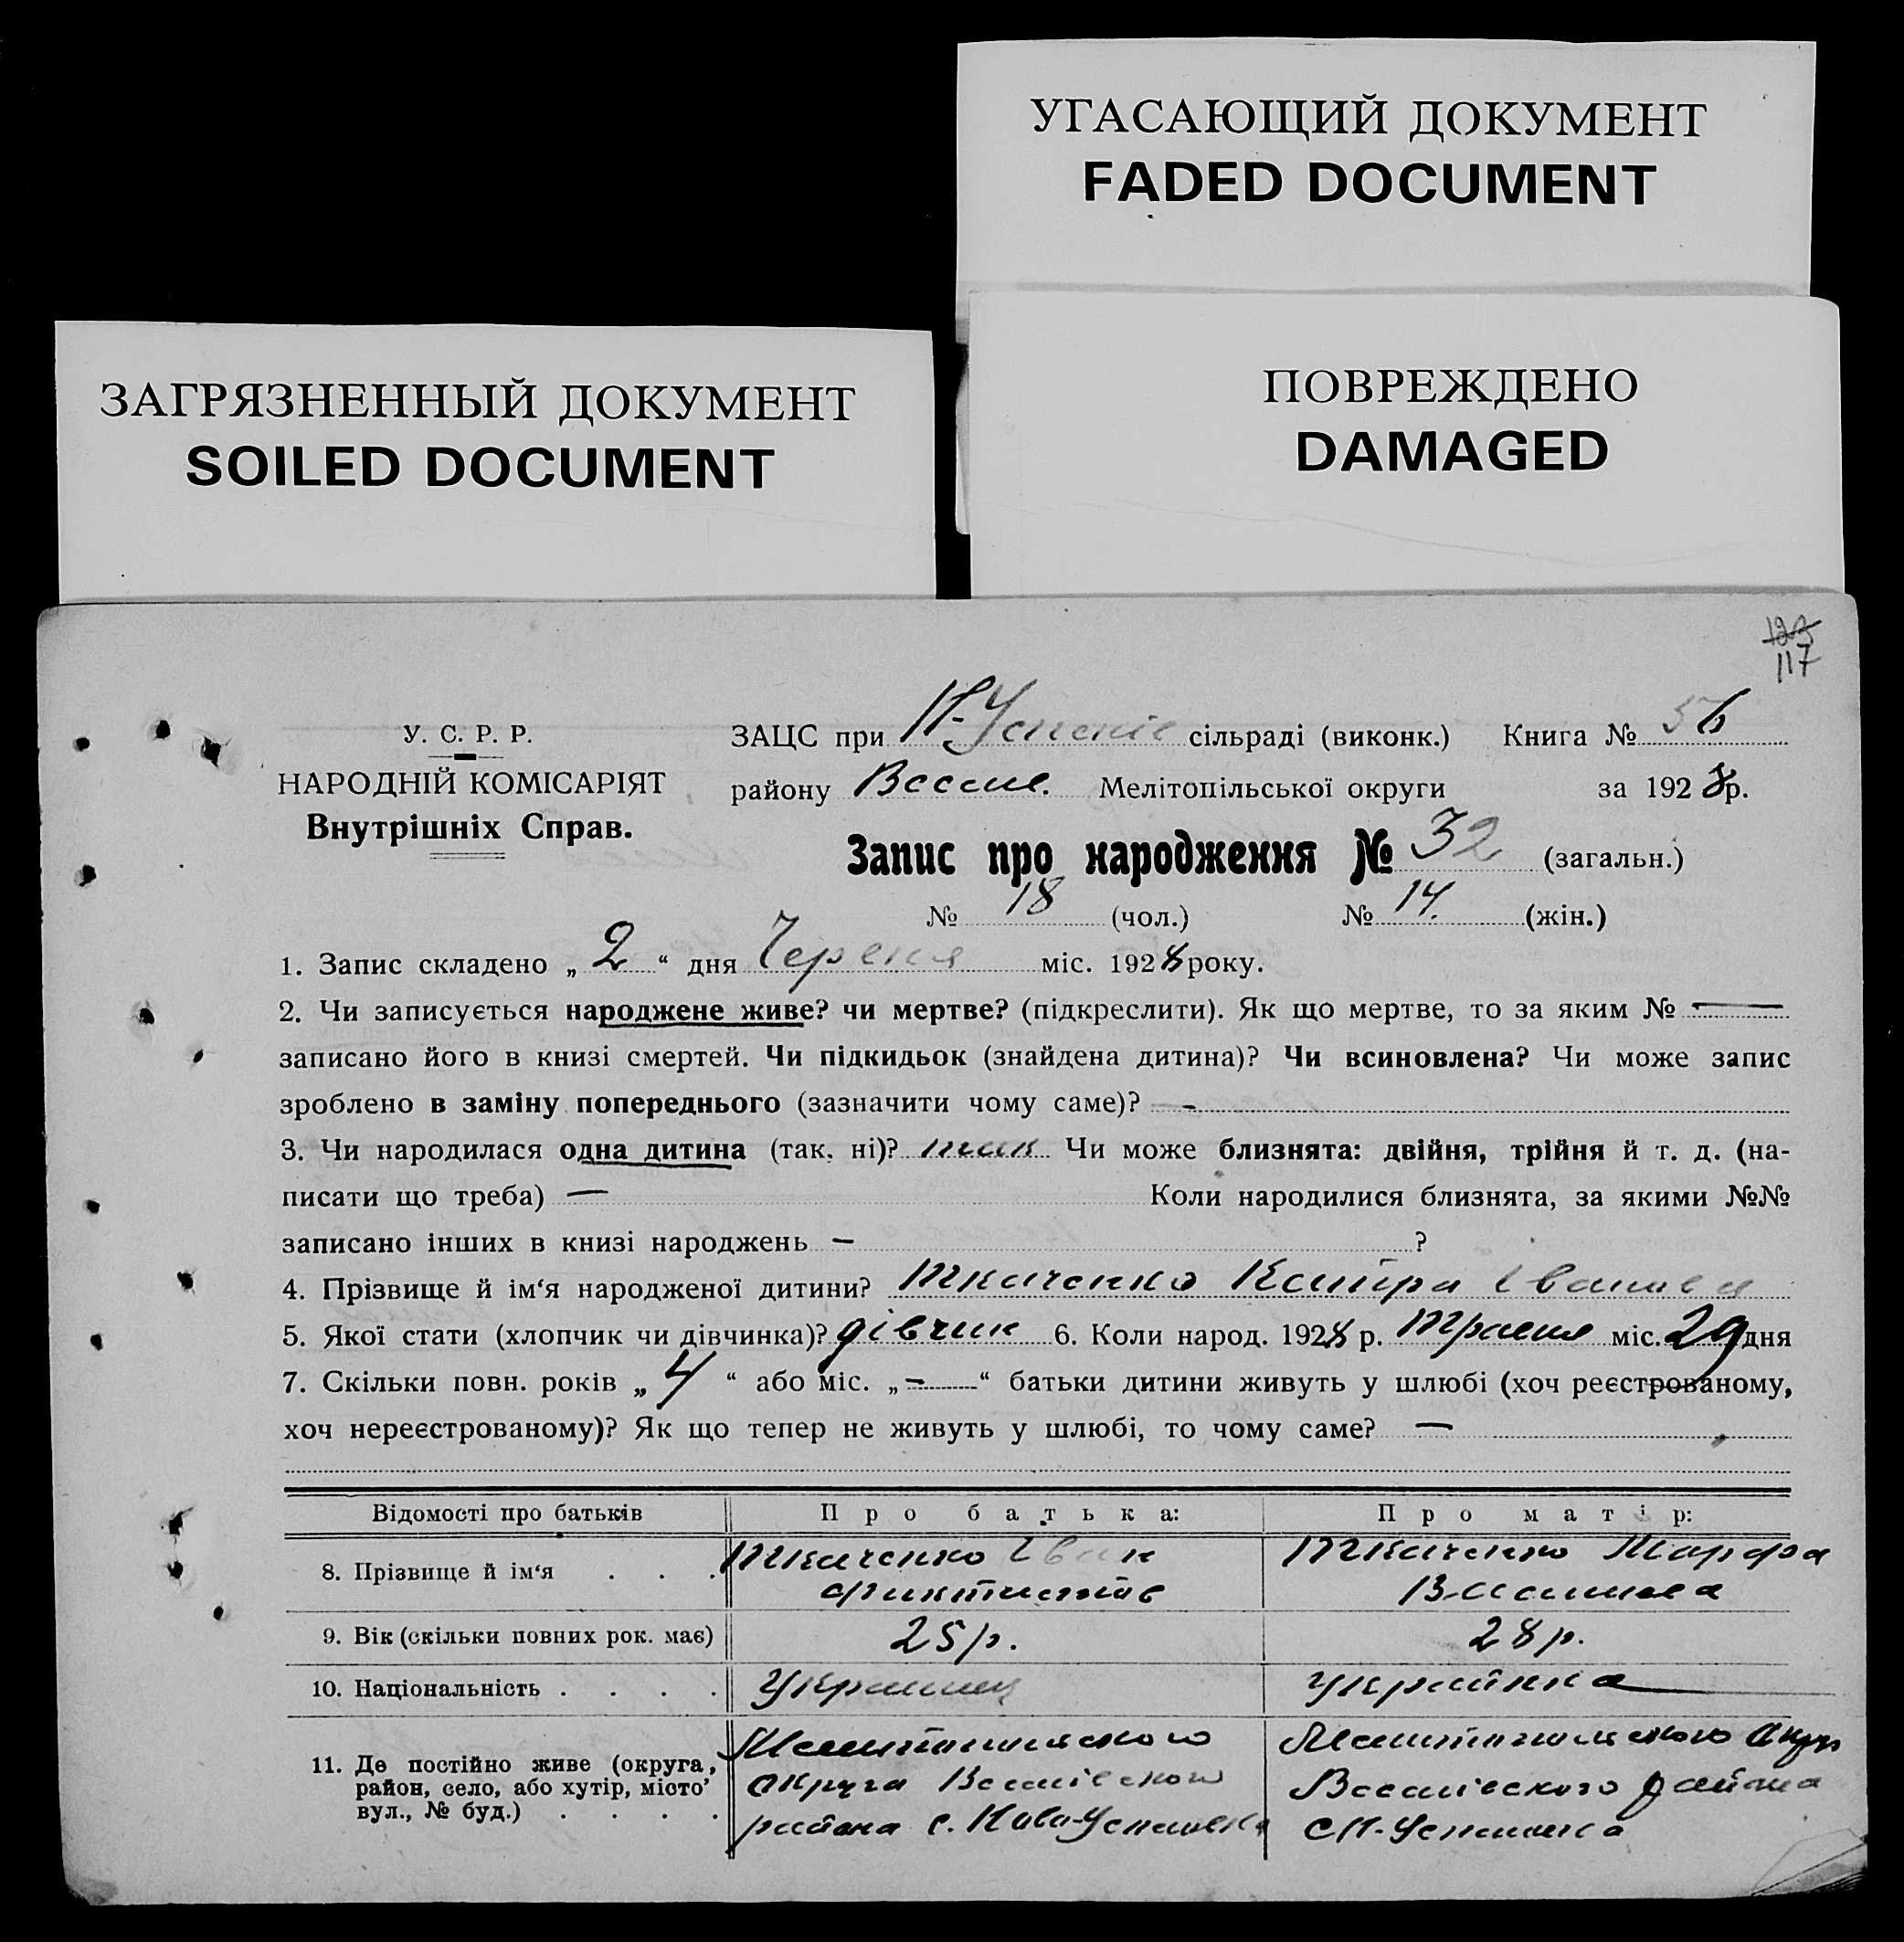 УГАСАЮЩИЙ ДОКУМЕНТ
FADED DOCUMENT
ЗАГРЯЗНЕННЫЙ ДОКУМЕНТ
SOILED DOCUMENT
ПОВРЕЖДЕНО
DAMAGED
123
117
У. С. Р. Р.
НАРОДНІЙ КОМІСАРІЯТ
Внутрішніх Справ.
ЗАЦС при Н-Успеніє сільраді (виконк.) Книга № 56
району Весел. Мелітопільської округи за 1928 р.
Запис про народження № 32 (загальн.)
№ 18 (чол.) № 14. (жін.)
1. Запис складено „ 2 “ дня Червня міс. 1928 року.
2. Чи записується народжене живе? чи мертве? (підкреслити). Як що мертве, то за яким № —
записано його в книзі смертей. Чи підкидьок (знайдена дитина)? Чи всиновлена? Чи може запис
зроблено в заміну попереднього (зазначити чому саме)? -
3. Чи народилася одна дитина (так, ні)? так Чи може близнята: двійня, трійня й т. д. (на-
писати що треба) — Коли народилися близнята, за якими №№
записано інших в книзі народжень — ?
4. Прізвище й ім‘я народженої дитини? Ткаченко Каттра Іванівна
5. Якої стати (хлопчик чи дівчинка)? дівчин 6. Коли народ. 1928 р. Травня міс. 29 дня
7. Скільки повн. років „ 4 “ або міс. „ — “ батьки дитини живуть у шлюбі (хоч реєстрованому,
хоч нереєстрованому)? Як що тепер не живуть у шлюбі, то чому саме? —
Відомості про батьків Про батька: Про матір:
8. Прізвище й ім‘я . . . Ткаченко Іван Ткаченко Марфа
9. Вік (скільки повних рок. має) 25 р. 28 р.
10. Національність . . . . Українец Українка
11. Де постійно живе (округа, район, село, або хутір, місто’ вул., № буд.) . . . .
Мелитопильского
округа Веселівского
района с. Ново-Успеновка
Мелитопильского округ
Веселівского района
с Н-Успеновка